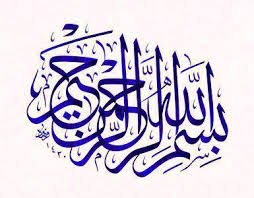 بِسْمِ اللَّهِ الرَّحْمَٰنِ الرَّحِيمِ
١٤٣٠